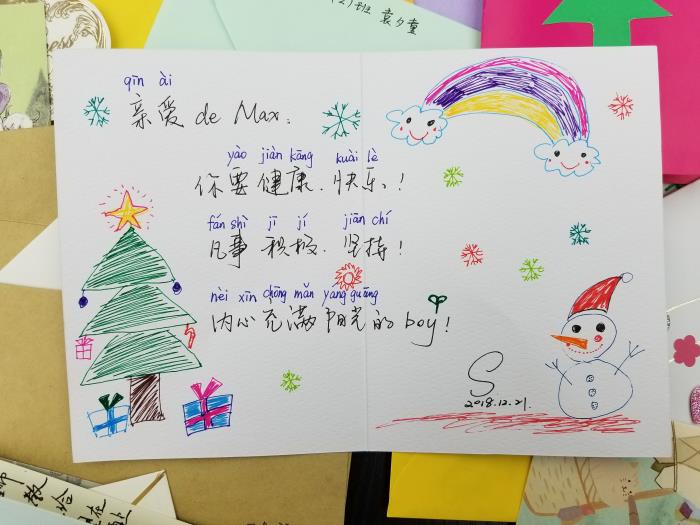 (2)班 袁夕童
qīn ài
亲爱 de Max.
yào jiàn kāng kuài lè
你要健康.快乐.!
fán shì jī jí jiān chí
凡事 积极. 坚持!
nèi xīn chōng mǎn yáng guāng
内心充满 阳光的 boy!
S
2018.12.21.